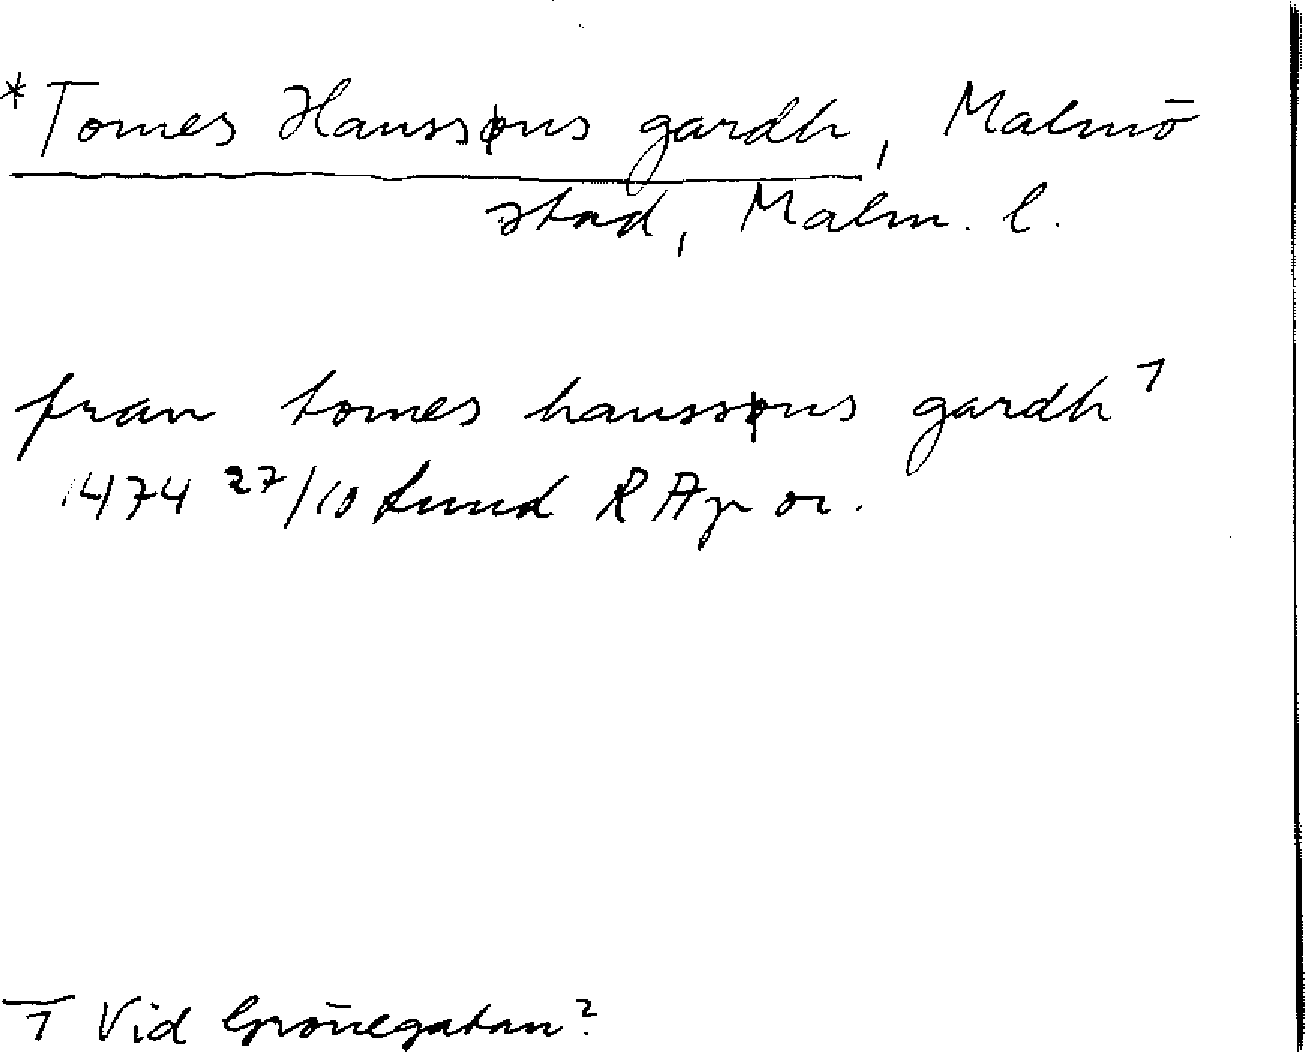 *Tomes Hanssøns gardh, Malmö
stad, Malm. l.
fran tomes hanssøns gardh 1
1474 27/10 Lund RAp or.
1 Vid Grönegatan?